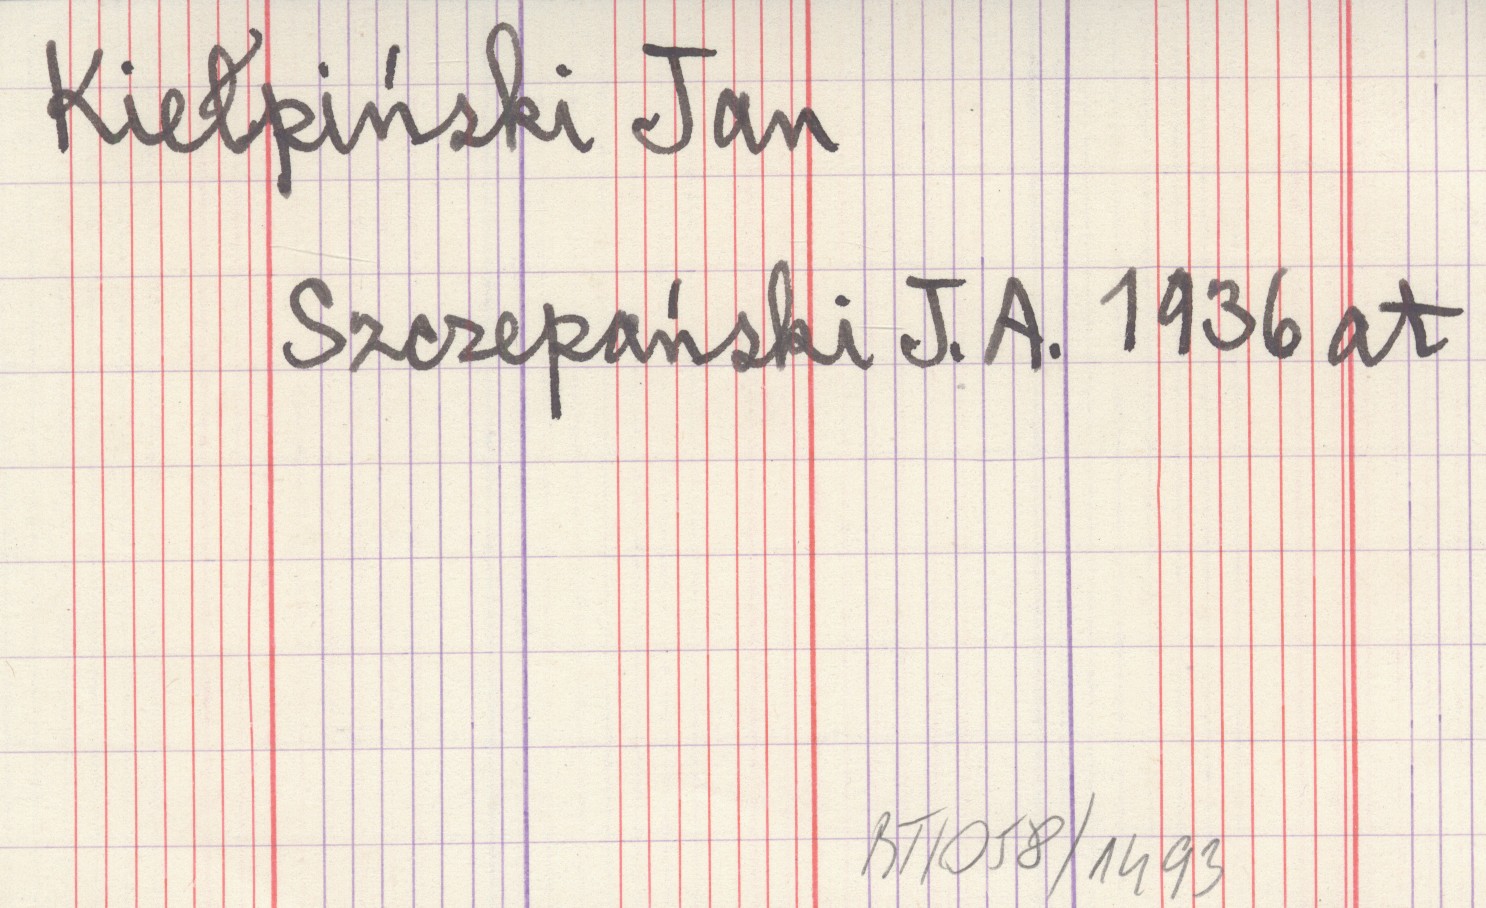 Kiełpiński Jan
Szczepański J.A. 1936 at
RT/058/1493